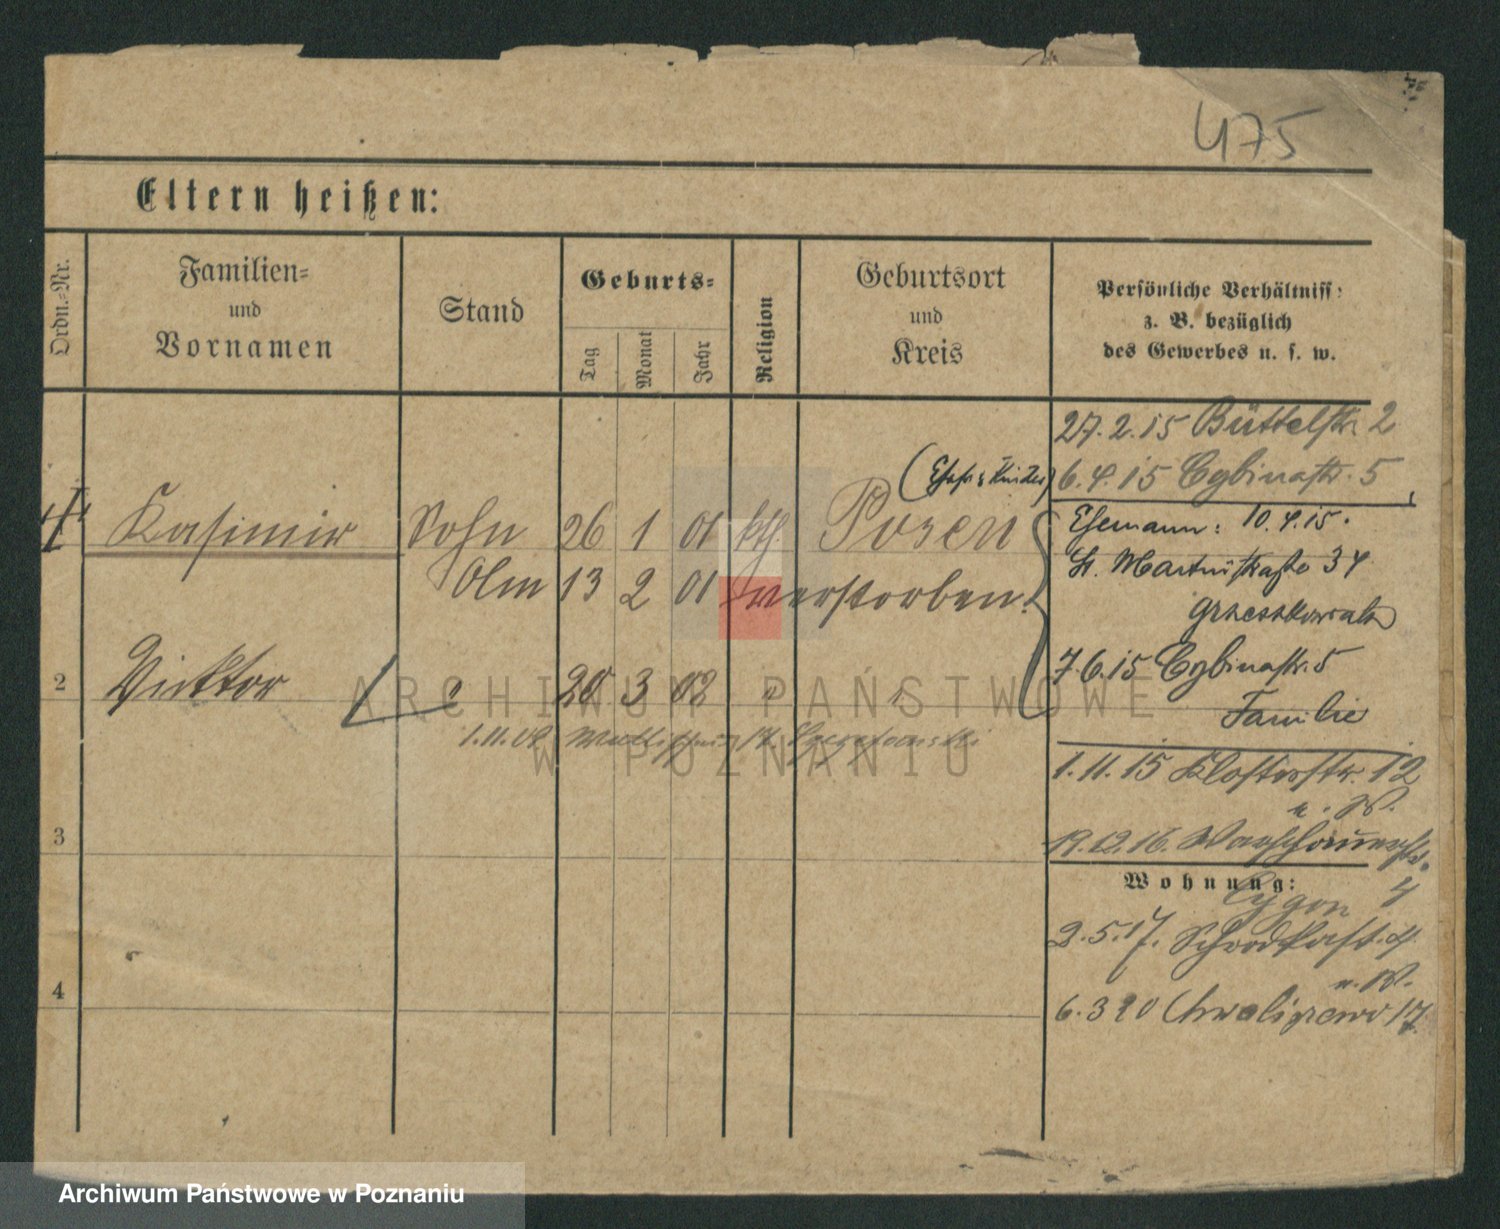 475
Eltern heißen:
Ordn.-Nr.
Familien-
und
Vornamen
Stand
Geburts-
Tag
Monat
Jahr
Religion
Geburtsort
und
Kreis
Persönliche Verhältniss:
z. B. bezüglich
des Gewerbes u. s. w.
27.2.15 Büttelstr. 2
6.4.15 Cybinastr. 5
1 Kasimir Sohn 26 1 01 kth. Posen
13 2 01 verstorben.
Ehemann: 10.4.15.
St. Martinstraße 34
7.6.15 Cybinastr. 5
Familie
2 Vicktor 20 3 02 " "
1.11.15 Klosterstr. 12
u. W.
3
19.12.16. Warschauerstr.
Wohnung:
4
2.5.17.
u. W.
4
6.3 20 Chwaliszewo 17
ARCHIWUM PAŃSTWOWE
W POZNANIU
Archiwum Państwowe w Poznaniu